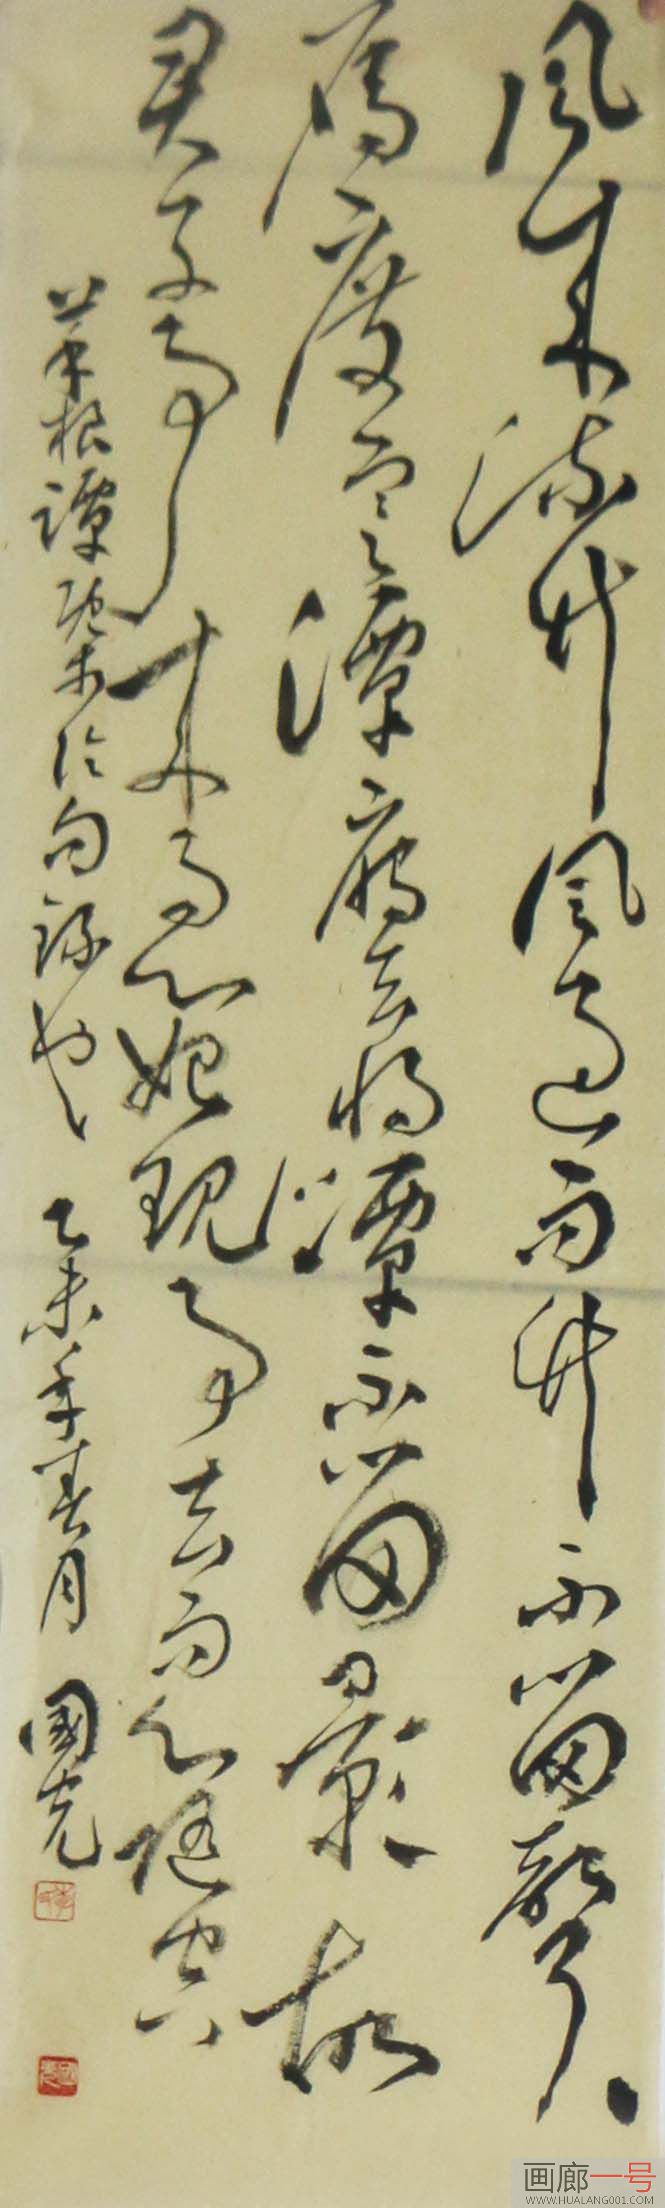 風來疏竹風過而竹不留聲
雁度寒潭雁去潭不留影故
君子事來而心始現事去而心随空
菜根譚句錄也 乙未年春月 國克
画廊一号
WWW.HUALANG001.COM